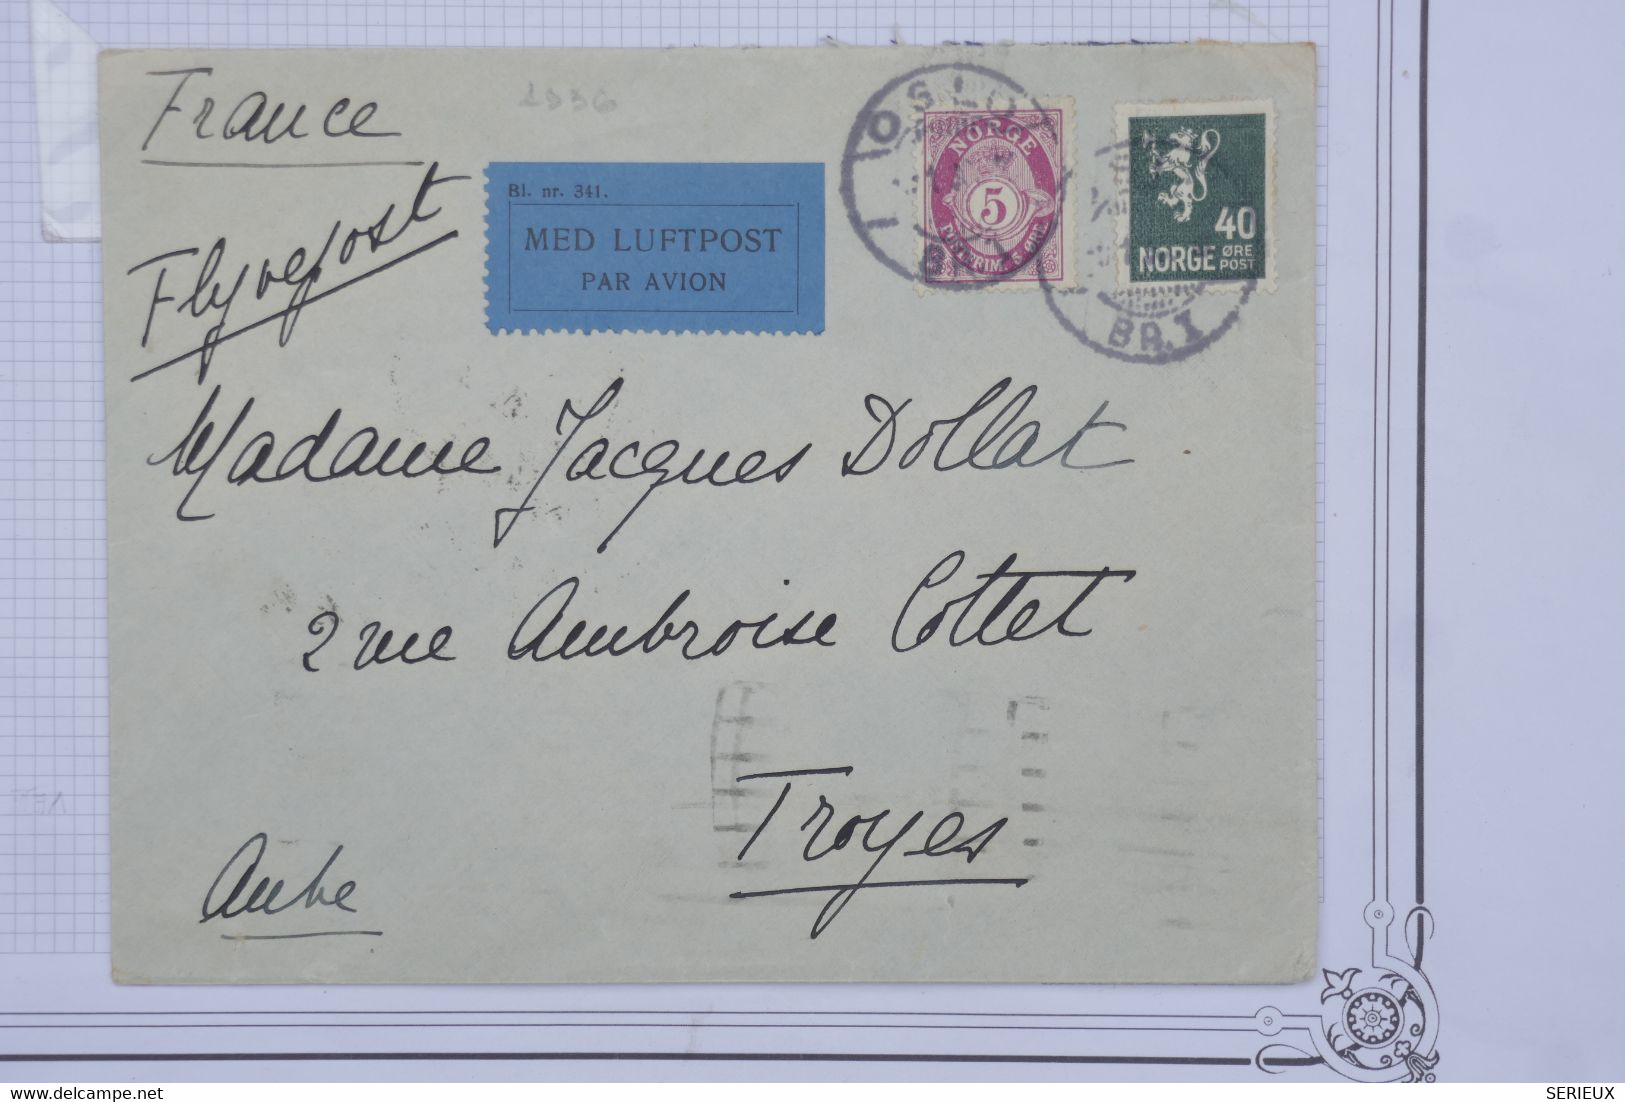 France
1936
Flyvepost
Bl. nr. 341.
MED LUFTPOST
PAR AVION
OSLO
BR. I
NORGE
5
POSTFRIM. 5 ØRE
40
NORGE ØRE
POST
Madame Jacques Dollat
2 rue Ambroise Cottet
Troyes
Aube
SERIEUX